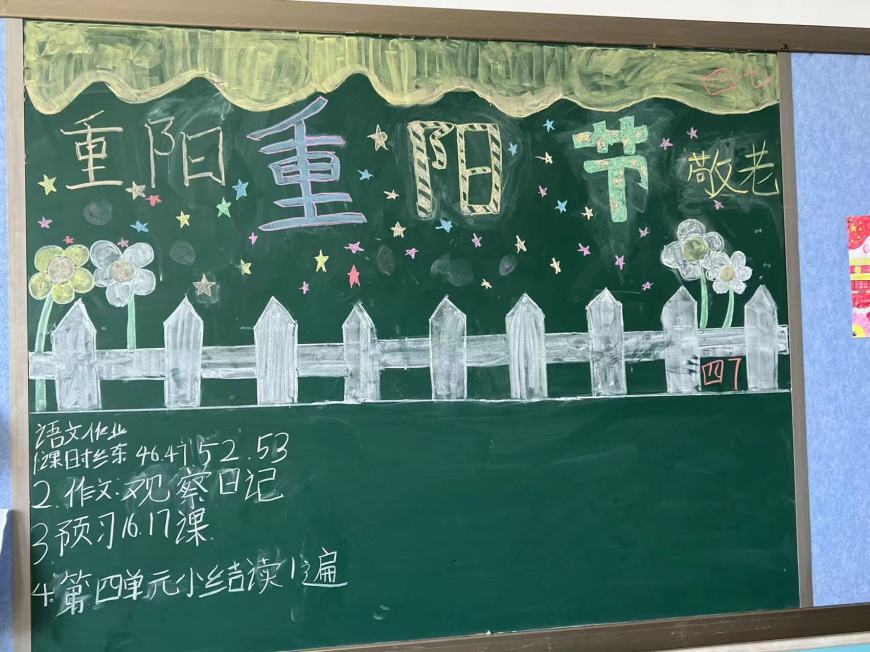 重阳 重阳节 敬老
四
语文作业
1.课时练 46.47 52.53
2.作文:观察日记
3 预习16.17课.
4.第四单元小结读1遍